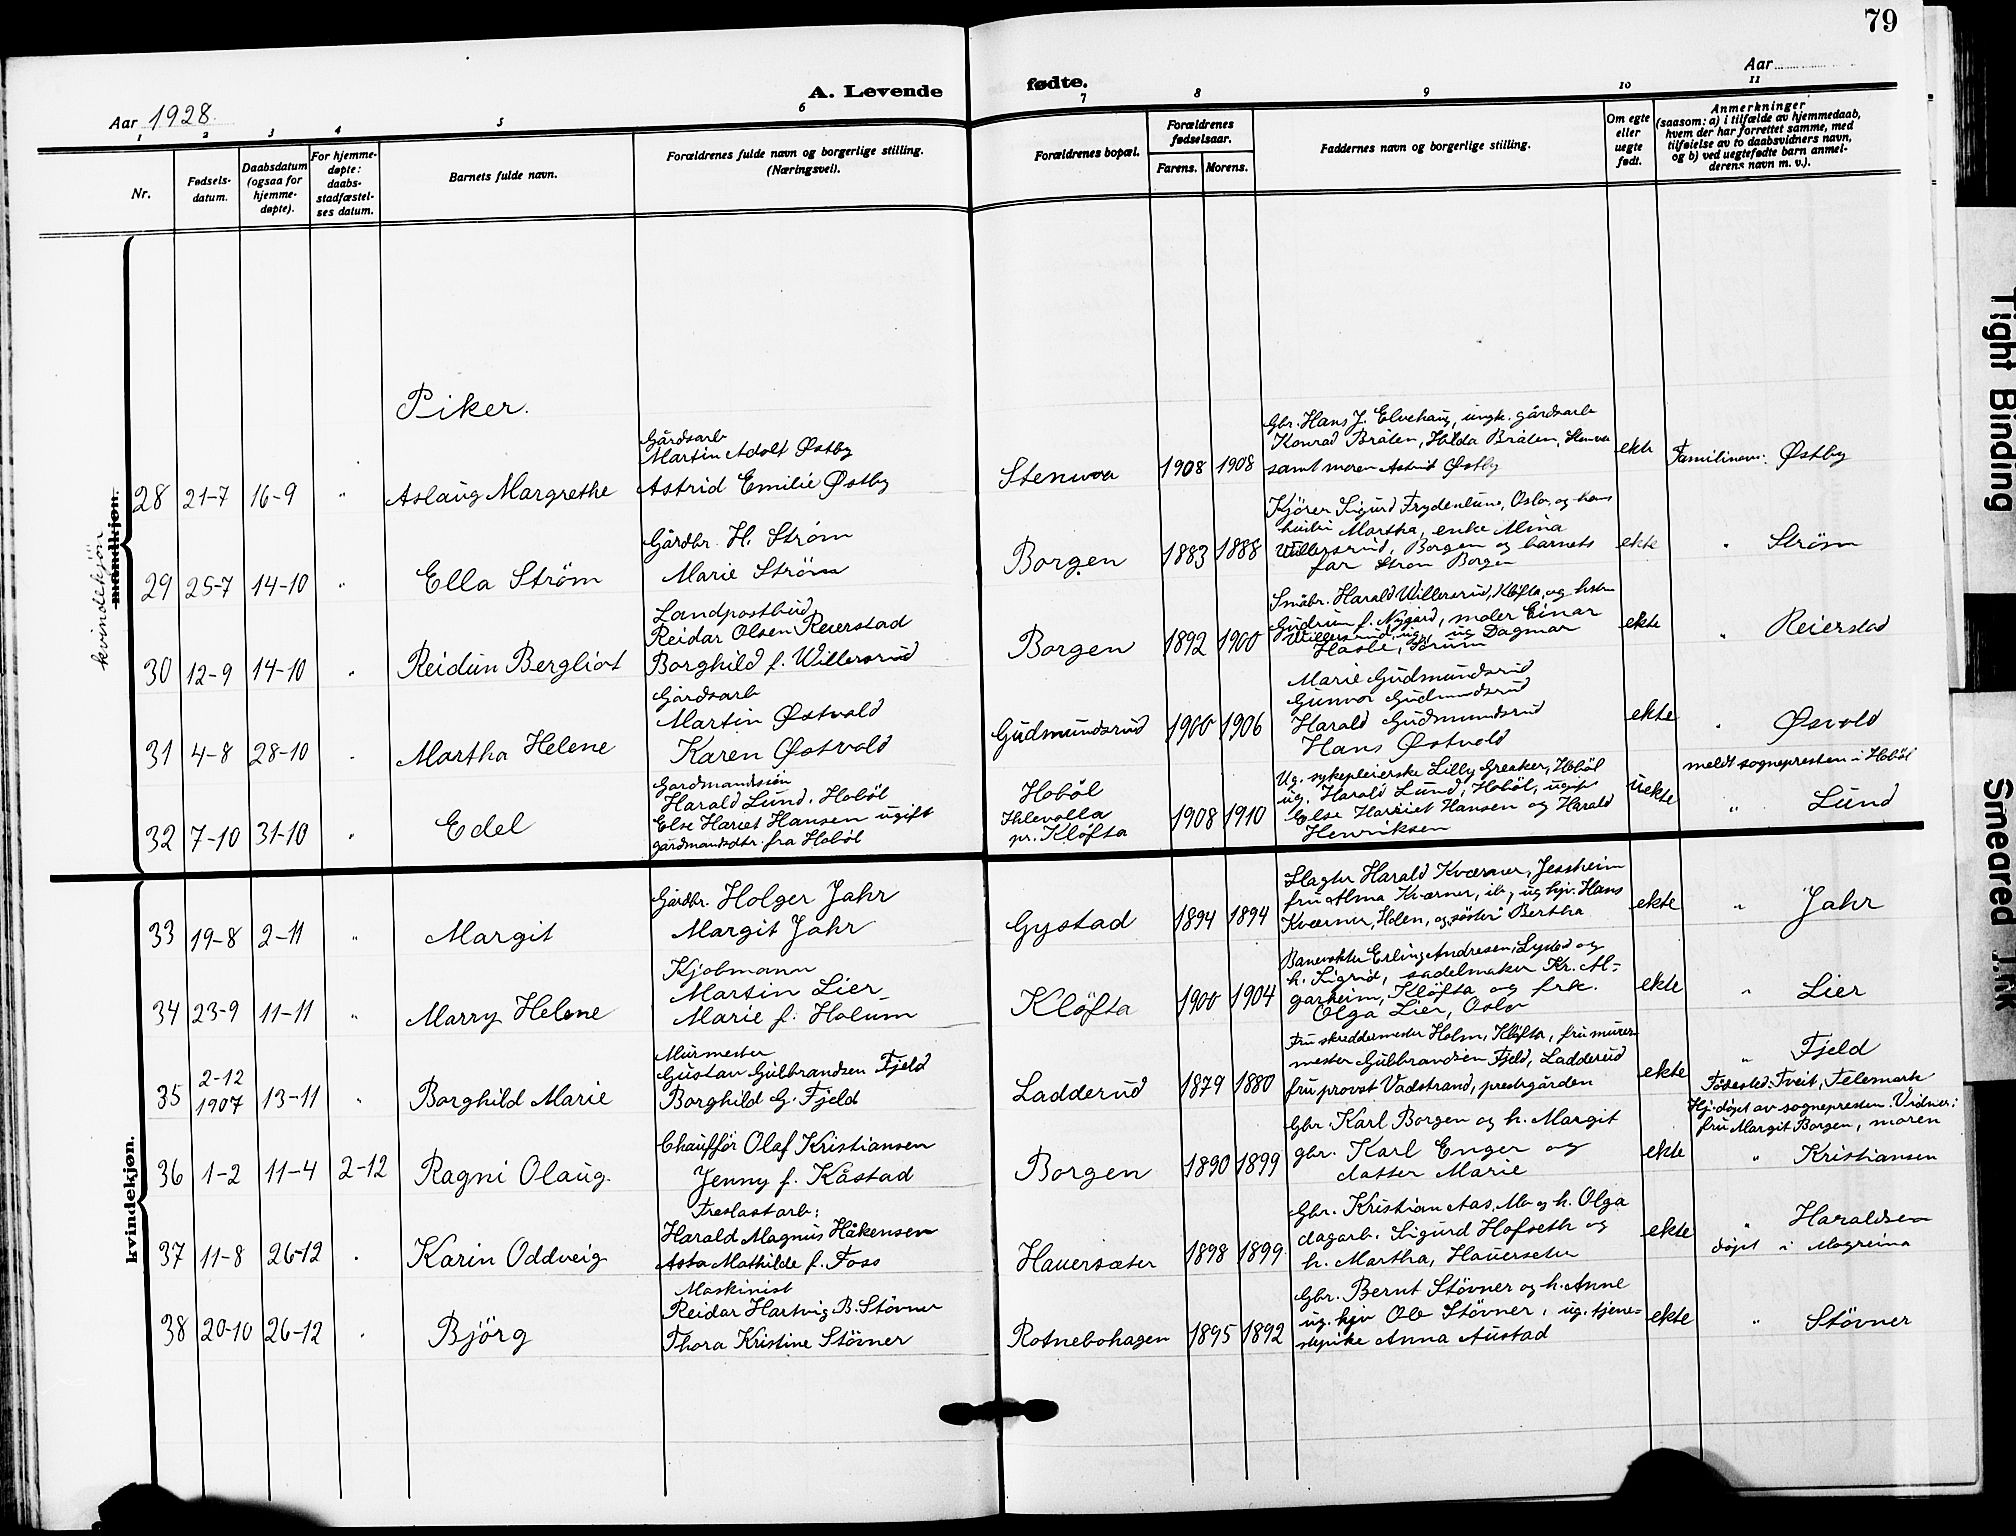 79
Aar 1928.
A. Levende
fødte.
Aar
1 2 3 4 5 6 7 8 9 10 11
Nr.
Fødsels-
datum.
Daabsdatum
(ogsaa for
hjemme-
døpte).
For hjemme-
døpte:
daabs-
stadfæstel-
ses datum.
Barnets fulde navn.
Forældrenes fulde navn og borgerlige stilling.
(Næringsvei).
Forældrenes bopæl.
Forældrenes
fødselsaar.
Farens. Morens.
Faddernes navn og borgerlige stilling.
Om egte
eller
uegte
født.
Anmerkninger
(saasom: a) i tilfælde av hjemmedaab,
hvem der har forrettet samme, med
tilføielse av to daabsvidners navn,
og b) ved uegtefødte barn anmel-
derens navn m. v.).
mandkjøn.
kvindekjön
Piker.
28 21-7 16-9 " Aslaug Margrethe
Gårdsarb
Martin Adolf Østby
Astrid Emilie Østby
1908 1908
Gbr. Hans J. Elvehaug, ungk. gårdsarb
Konrad Bråten, Hilda Bråten,
samt moren Astrid Østby
ekte
Familienavn: Østby
29 25-7 14-10 " Ella Ström
Gårdbr. H. Strøm
Marie Strøm
Borgen 1883 1888
Kjörer Sigurd Frydenlund, Oslo, og hans
hustru Martha, enke Mina
Willersrud, Borgen og barnets
far Strøm Borgen
ekte
" Strøm
30 12-9 14-10 " Reidun Bergliot
Landpostbud
Reidar Olsen Reierstad
Borghild f. Willersrud
Borgen 1892 1900
Småbr. Harald Willersrud, Kløfta, og hstr
Gudrun f. Nygård, maler Einar
Willersrud, ug, ug Dagmar
Hasle,
ekte
" Reierstad
31 4-8 28-10 " Martha Helene
Gårdsarb
Martin Østvold
Karen Østvold
Gudmundsrud 1900 1906
Marie Gudmundsrud
Gunvor Gudmundsrud
Harald Gudmundsrud
Hans Østvold
ekte
" Øsvold
32 7-10 31-10 " Edel
Gårdmandssön
Harald Lund. Hobøl
Else Hariet Hansen ugift
gårdmandsdtr. fra Hobøl
Hobøl
pr. Kløfta
1908 1910
Ug. sykepleierske Lilly Greaker, Hobøl
ug. Harald Lund, Hobøl, ugift
Else Harriet Hansen og Harald
Henriksen
uekte
meldt sognepresten i Hobøl
" Lund
kvindekjøn.
33 19-8 2-11 " Margit
Gårdbr. Holger Jahr
Margit Jahr
Gystad 1894 1894
Slagter Harald Kværner, Jessheim
fru Alma Kværner, ib, ug hjv. Hans
Kværner, Holen, og søster Bertha
ekte
" Jahr
34 23-9 11-11 " Marry Helene
Kjøbmann
Martin Lier
Marie f. Holum
Kløfta 1900 1904
Banevokter Erling Andresen, og
h. Sigrid, sadelmaker Kr. Al-
garheim, Kløfta og frk.
Olga Lier, Oslo
ekte
" Lier
35 2-12
1907 13-11 " Borghild Marie
Murmester
Gustav Gulbrandsen Fjeld
Borghild G. Fjeld
Ladderud 1879 1880
Fru skreddermester Holm, Kløfta, fru murer-
mester Gulbrandsen Fjeld, Ladderud
fru provst Vadstrand, prestegården
ekte
" Fjeld
Fødested: Tveit, Telemark
36 1-2 11-4 2-12 Ragni Olaug.
Chaufför Olaf Kristiansen
Jenny f. Kåstad
Borgen 1890 1899
Gbr. Karl Borgen og h. Margit
gbr. Karl Enger og
datter Marie
ekte
Hj.døpt av sognepresten. Vidner:
fru Margit Borgen, moren
" Kristiansen
37 11-8 26-12 " Karin Oddveig
Treslastarb:
Harald Magnus Håkensen
Asta Mathilde f. Foss
Hauersæter 1898 1899
Gbr. Kristian Aas, Mo og h. Olga
dagarb. Sigurd Hofseth og
h. Martha, Hauerseter
ekte
" Haraldsen
døpt i Mogreina
38 20-10 26-12 " Bjørg
Maskinist
Reidar Hartvig B. Støvner
Thora Kristine Stövner
Rotnebohagen 1895 1892
Gbr. Bernt Stövner og h. Anne
ug. hjv Ole Stövner, ug. tjene-
stepike Anna Austad
ekte
" Stövner
Tight Binding
Smeared Ink